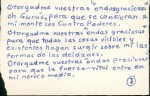 Otorgadme vuestras endosgraciosas
oh Gurús, para que se confieran a
mi mente las Cuatro Poderes.
Otorgadme vuestras ondas graciosas
para que todas las cosas visibles y
existentes hagan surgir sobre mí las
formas de las deidades.
Otorgadme vuestras ondas graciosas
para que la fuerza-vital entre en
mi nervio medio.
3